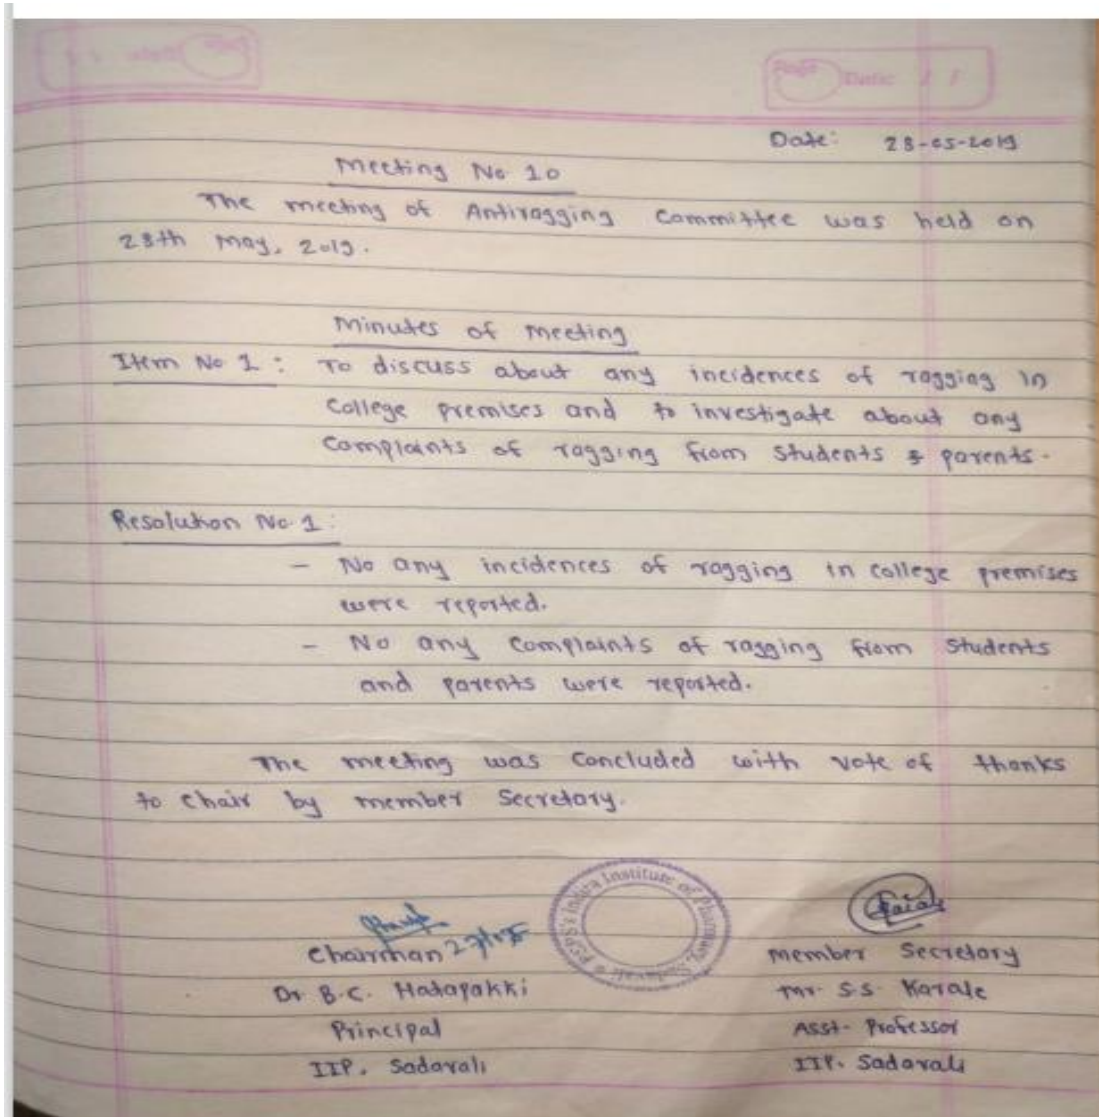 Page Date: / /
Date: 28-05-2019
Meeting No 10
The meeting of Antiragging Committee was held on
28th May, 2019.
Minutes of Meeting
Item No 1 : To discuss about any incidences of ragging in
College premises and to investigate about any
Complaints of ragging from Students & parents.
Resolution No. 1 :
- No any incidences of ragging in college premises
were reported.
- No any Complaints of ragging from Students
and parents were reported.
The meeting was Concluded with vote of thanks
to Chair by member Secretary.
Indira Institute of Pharmacy, Sadavali
Chairman
Member Secretary
Dr. B.C. Hatapakki
Mr. S.S. Karale
Principal
Asst. Professor
IIP, Sadavali
IIP, Sadavali